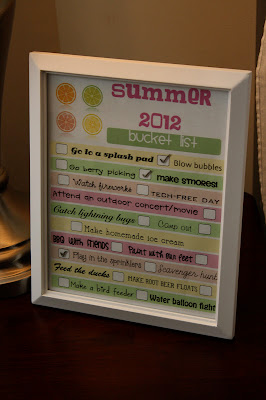 summer
2012
bucket list
Go to a splash pad Blow bubbles
Go berry picking make s'mores!
Watch fireworks TECH-FREE DAY
Attend an outdoor concert/movie
Catch lightning bugs Camp out
Make homemade ice cream
BBQ with friends Paint with our feet
Play in the sprinklers Scavenger hunt
Feed the ducks MAKE ROOT BEER FLOATS
Make a bird feeder Water balloon fight